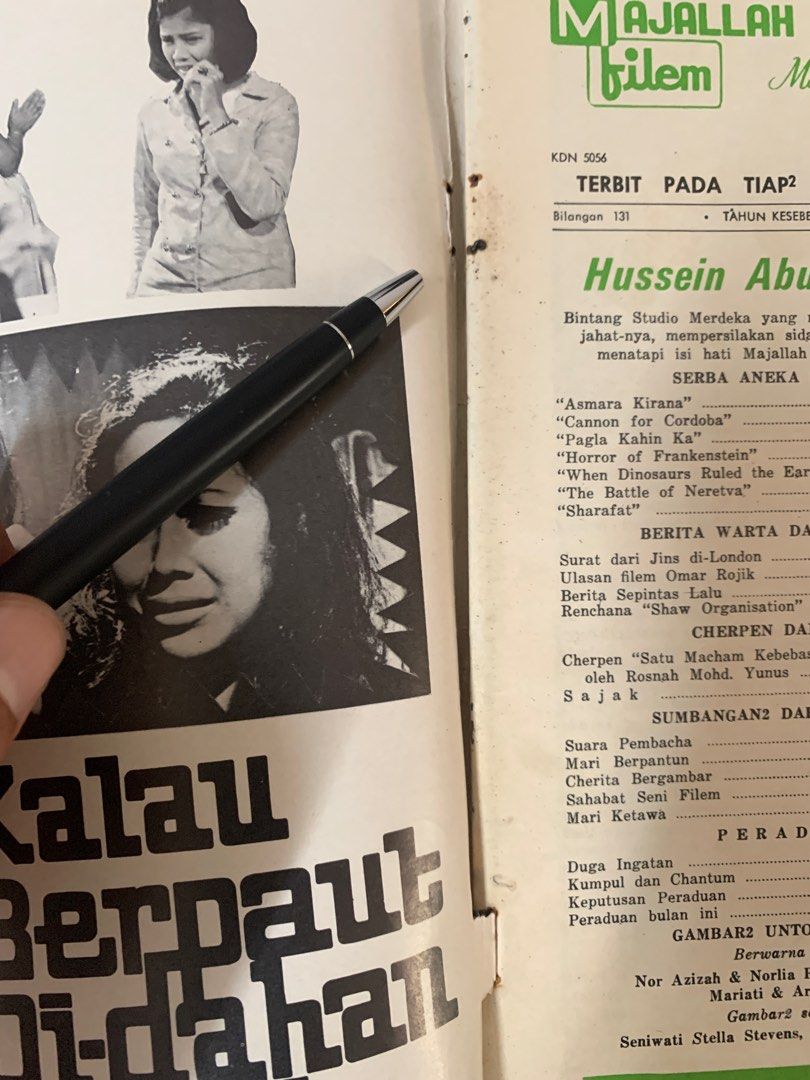 Kalau
Berpaut
Di-dahan
MAJALLAH
filem
KDN 5056
TERBIT PADA TIAP2
Bilangan 131 • TAHUN
Hussein
Bintang Studio Merdeka yang
jahat-nya, mempersilakan
menatapi isi hati Majallah
SERBA ANEKA
"Asmara Kirana"
"Cannon for Cordoba"
"Pagla Kahin Ka"
"Horror of Frankenstein"
"When Dinosaurs Ruled the
"The Battle of Neretva"
"Sharafat"
BERITA WARTA
Surat dari Jins di-London
Ulasan filem Omar Rojik
Berita Sepintas Lalu
Renchana "Shaw Organisation"
CHERPEN
Cherpen "Satu Macham
oleh Rosnah Mohd. Yunus
Sajak
SUMBANGAN2
Suara Pembacha
Mari Berpantun
Cherita Bergambar
Sahabat Seni Filem
Mari Ketawa
Duga Ingatan
Kumpul dan Chantum
Keputusan Peraduan
Peraduan bulan ini
GAMBAR2
Berwarna
Nor Azizah & Norlia
Mariati &
Gambar2
Seniwati Stella Stevens,